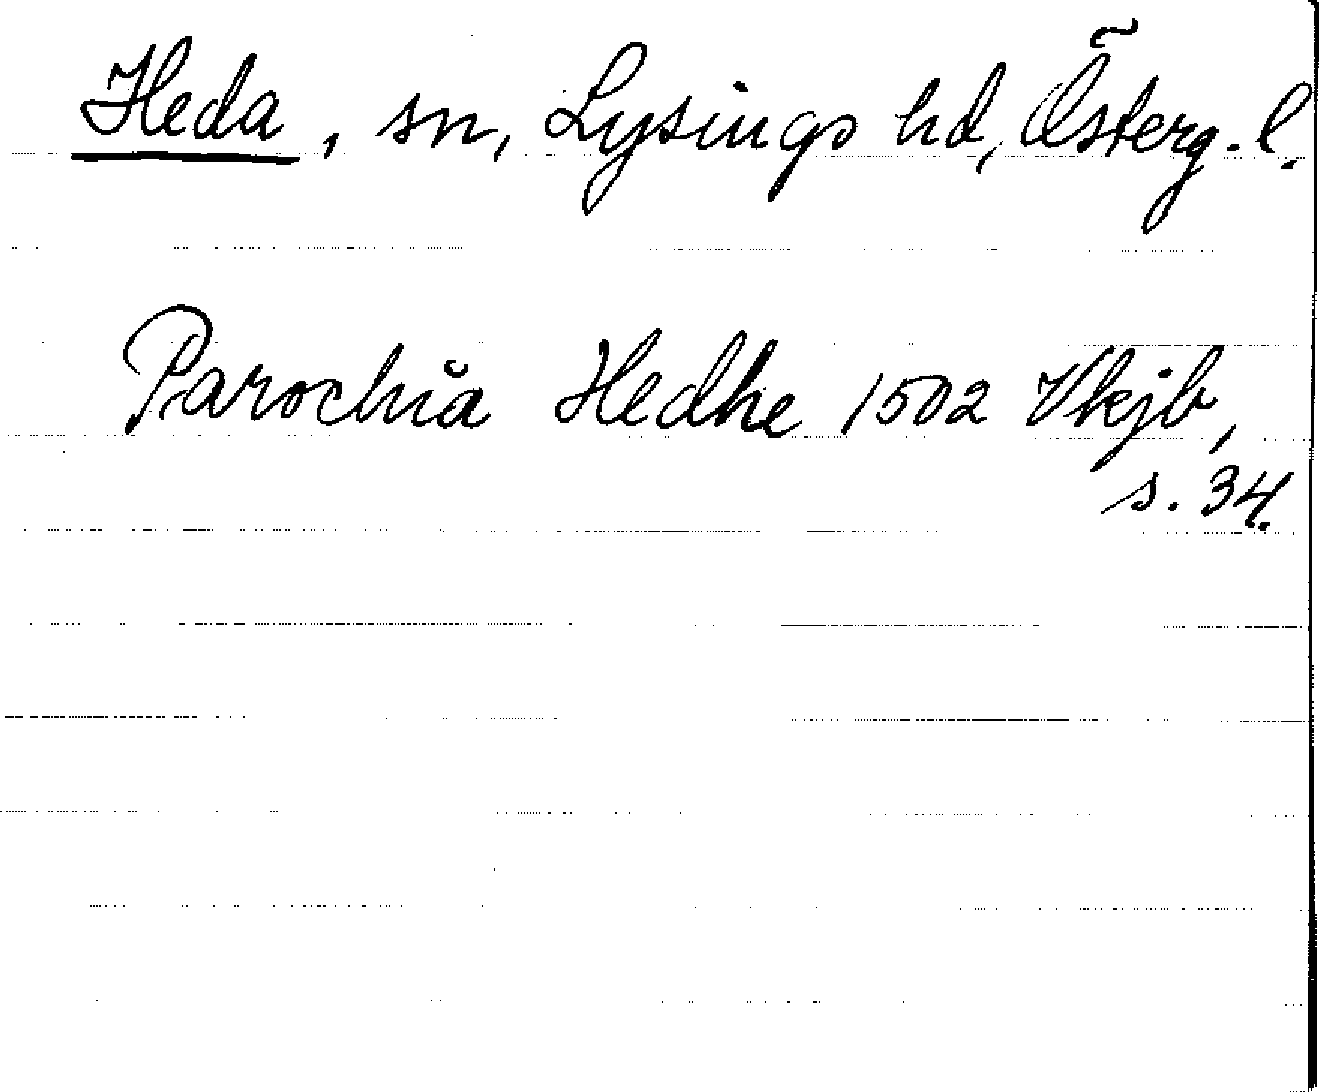 Heda, sn, Lysings hd, Österg. l.
Parochia Hedhe 1502 Vkjb,
s. 34.